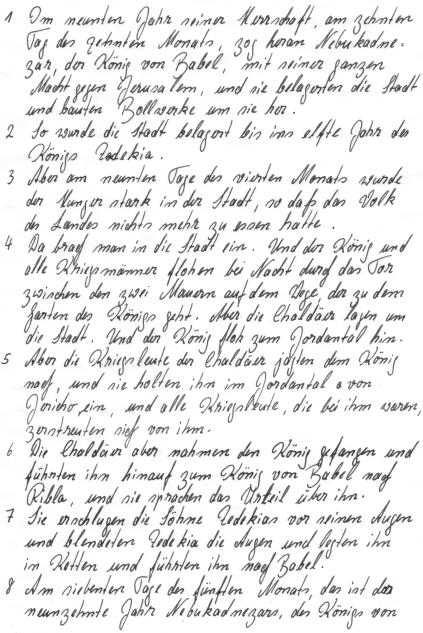 1 Im neunten Jahr seiner Herrschaft, am zehnten
Tag des zehnten Monats, zog heran Nebukadne=
zar, der König von Babel, mit seiner ganzen
Macht gegen Jerusalem, und sie belagerten die Stadt
und bauten Bollwerke um sie her.
2 So wurde die Stadt belagert bis ins elfte Jahr des
Königs Zedekia.
3 Aber am neunten Tage des vierten Monats wurde
der Hunger stark in der Stadt, so daß das Volk
des Landes nichts mehr zu essen hatte.
4 Da brach man in die Stadt ein. Und der König und
alle Kriegsmänner flohen bei Nacht durch das Tor
zwischen den zwei Mauern auf dem Wege, der zu dem
Garten des Königs geht. Aber die Chaldäer lagen um
die Stadt. Und der König floh zum Jordantal hin.
5 Aber die Kriegsleute der Chaldäer jagten dem König
nach, und sie holten ihn im Jordantal von
Jericho ein, und alle Kriegsleute, die bei ihm waren,
zerstreuten sich von ihm.
6 Die Chaldäer aber nahmen den König gefangen und
führten ihn hinauf zum König von Babel nach
Ribla, und sie sprachen das Urteil über ihn.
7 Sie erschlugen die Söhne Zedekias vor seinen Augen
und blendeten Zedekia die Augen und legten ihn
in Ketten und führten ihn nach Babel.
8 Am siebenten Tage des fünften Monats, das ist das
neunzehnte Jahr Nebukadnezars, des Königs von